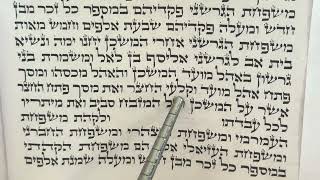 משפחת הגרשני פקדיהם במספר כל זכר מבן
חדש ומעלה פקדיהם שבעת אלפים וחמש מאות
משפחת הגרשני אחרי המשכן יחנו ימה ונשיא
בית אב לגרשני אליסף בן לאל ומשמרת בני
גרשון באהל מועד המשכן והאהל מכסהו ומסך
פתח אהל מועד וקלעי החצר ואת מסך פתח החצר
אשר על המשכן המזבח סביב ואת מיתריו
לכל עבדתו ולקהת משפחת
העמרמי ומשפחת ומשפחת החברני
ומשפחת העזיאלי אלה הם משפחת הקהתי
במספר כל זכר מבן חדש ומעלה שמנת אלפים